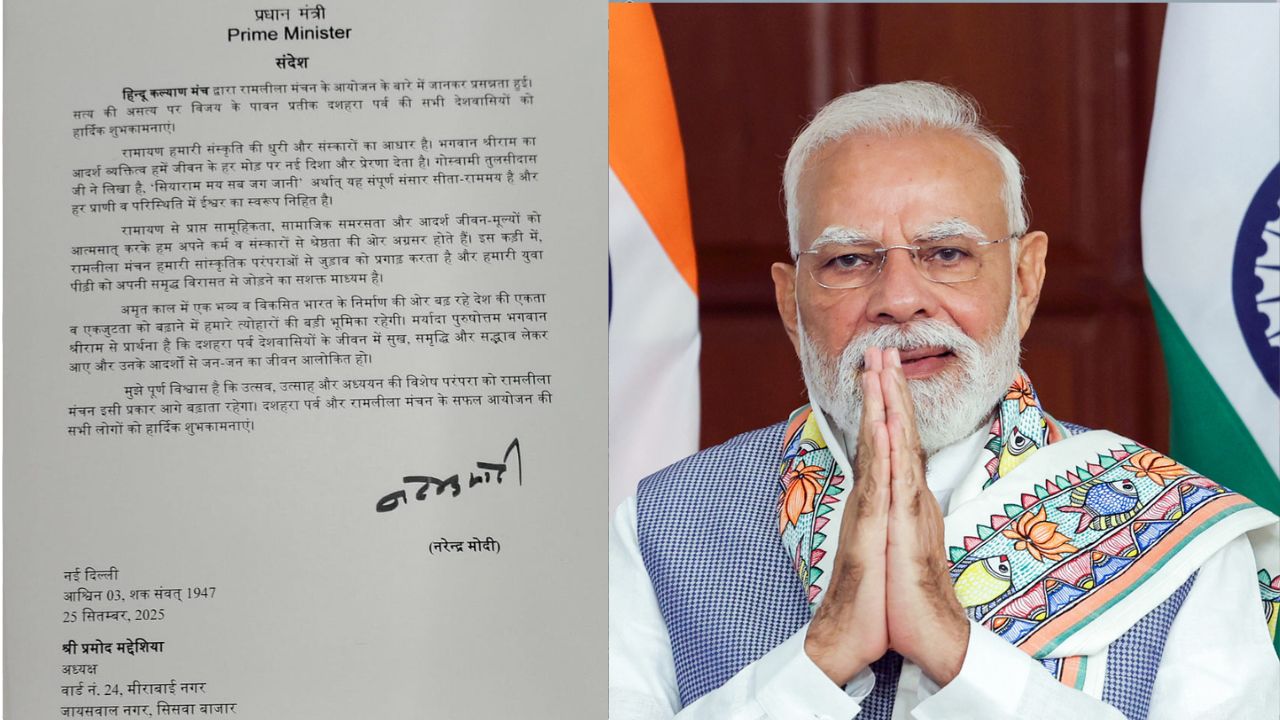 प्रधान मंत्री
Prime Minister
संदेश
हिन्दू कल्याण मंच द्वारा रामलीला मंचन के आयोजन के बारे में जानकर प्रसन्नता हुई।
सत्य की असत्य पर विजय के पावन प्रतीक दशहरा पर्व की सभी देशवासियों को
हार्दिक शुभकामनाएं।
रामायण हमारी संस्कृति की धुरी और संस्कारों का आधार है। भगवान श्रीराम का
आदर्श व्यक्तित्व हमें जीवन के हर मोड़ पर नई दिशा और प्रेरणा देता है। गोस्वामी तुलसीदास
जी ने लिखा है, ‘सियाराम मय सब जग जानी’ अर्थात् यह संपूर्ण संसार सीता-राममय है और
हर प्राणी व परिस्थिति में ईश्वर का स्वरूप निहित है।
रामायण से प्राप्त सामूहिकता, सामाजिक समरसता और आदर्श जीवन-मूल्यों को
आत्मसात् करके हम अपने कर्म व संस्कारों से श्रेष्ठता की ओर अग्रसर होते हैं। इस कड़ी में,
रामलीला मंचन हमारी सांस्कृतिक परंपराओं से जुड़ाव को प्रगाढ़ करता है और हमारी युवा
पीढ़ी को अपनी समृद्ध विरासत से जोड़ने का सशक्त माध्यम है।
अमृत काल में एक भव्य व विकसित भारत के निर्माण की ओर बढ़ रहे देश की एकता
व एकजुटता को बढ़ाने में हमारे त्योहारों की बड़ी भूमिका रहेगी। मर्यादा पुरुषोत्तम भगवान
श्रीराम से प्रार्थना है कि दशहरा पर्व देशवासियों के जीवन में सुख, समृद्धि और सद्भाव लेकर
आए और उनके आदर्शों से जन-जन का जीवन आलोकित हो।
मुझे पूर्ण विश्वास है कि उत्सव, उत्साह और अध्ययन की विशेष परंपरा को रामलीला
मंचन इसी प्रकार आगे बढ़ाता रहेगा। दशहरा पर्व और रामलीला मंचन के सफल आयोजन की
सभी लोगों को हार्दिक शुभकामनाएं।
नरेन्द्र मोदी
(नरेन्द्र मोदी)
नई दिल्ली
आश्विन 03, शक संवत् 1947
25 सितम्बर, 2025
श्री प्रमोद मद्देशिया
अध्यक्ष
वार्ड नं. 24, मीराबाई नगर
जायसवाल नगर, सिसवा बाजार